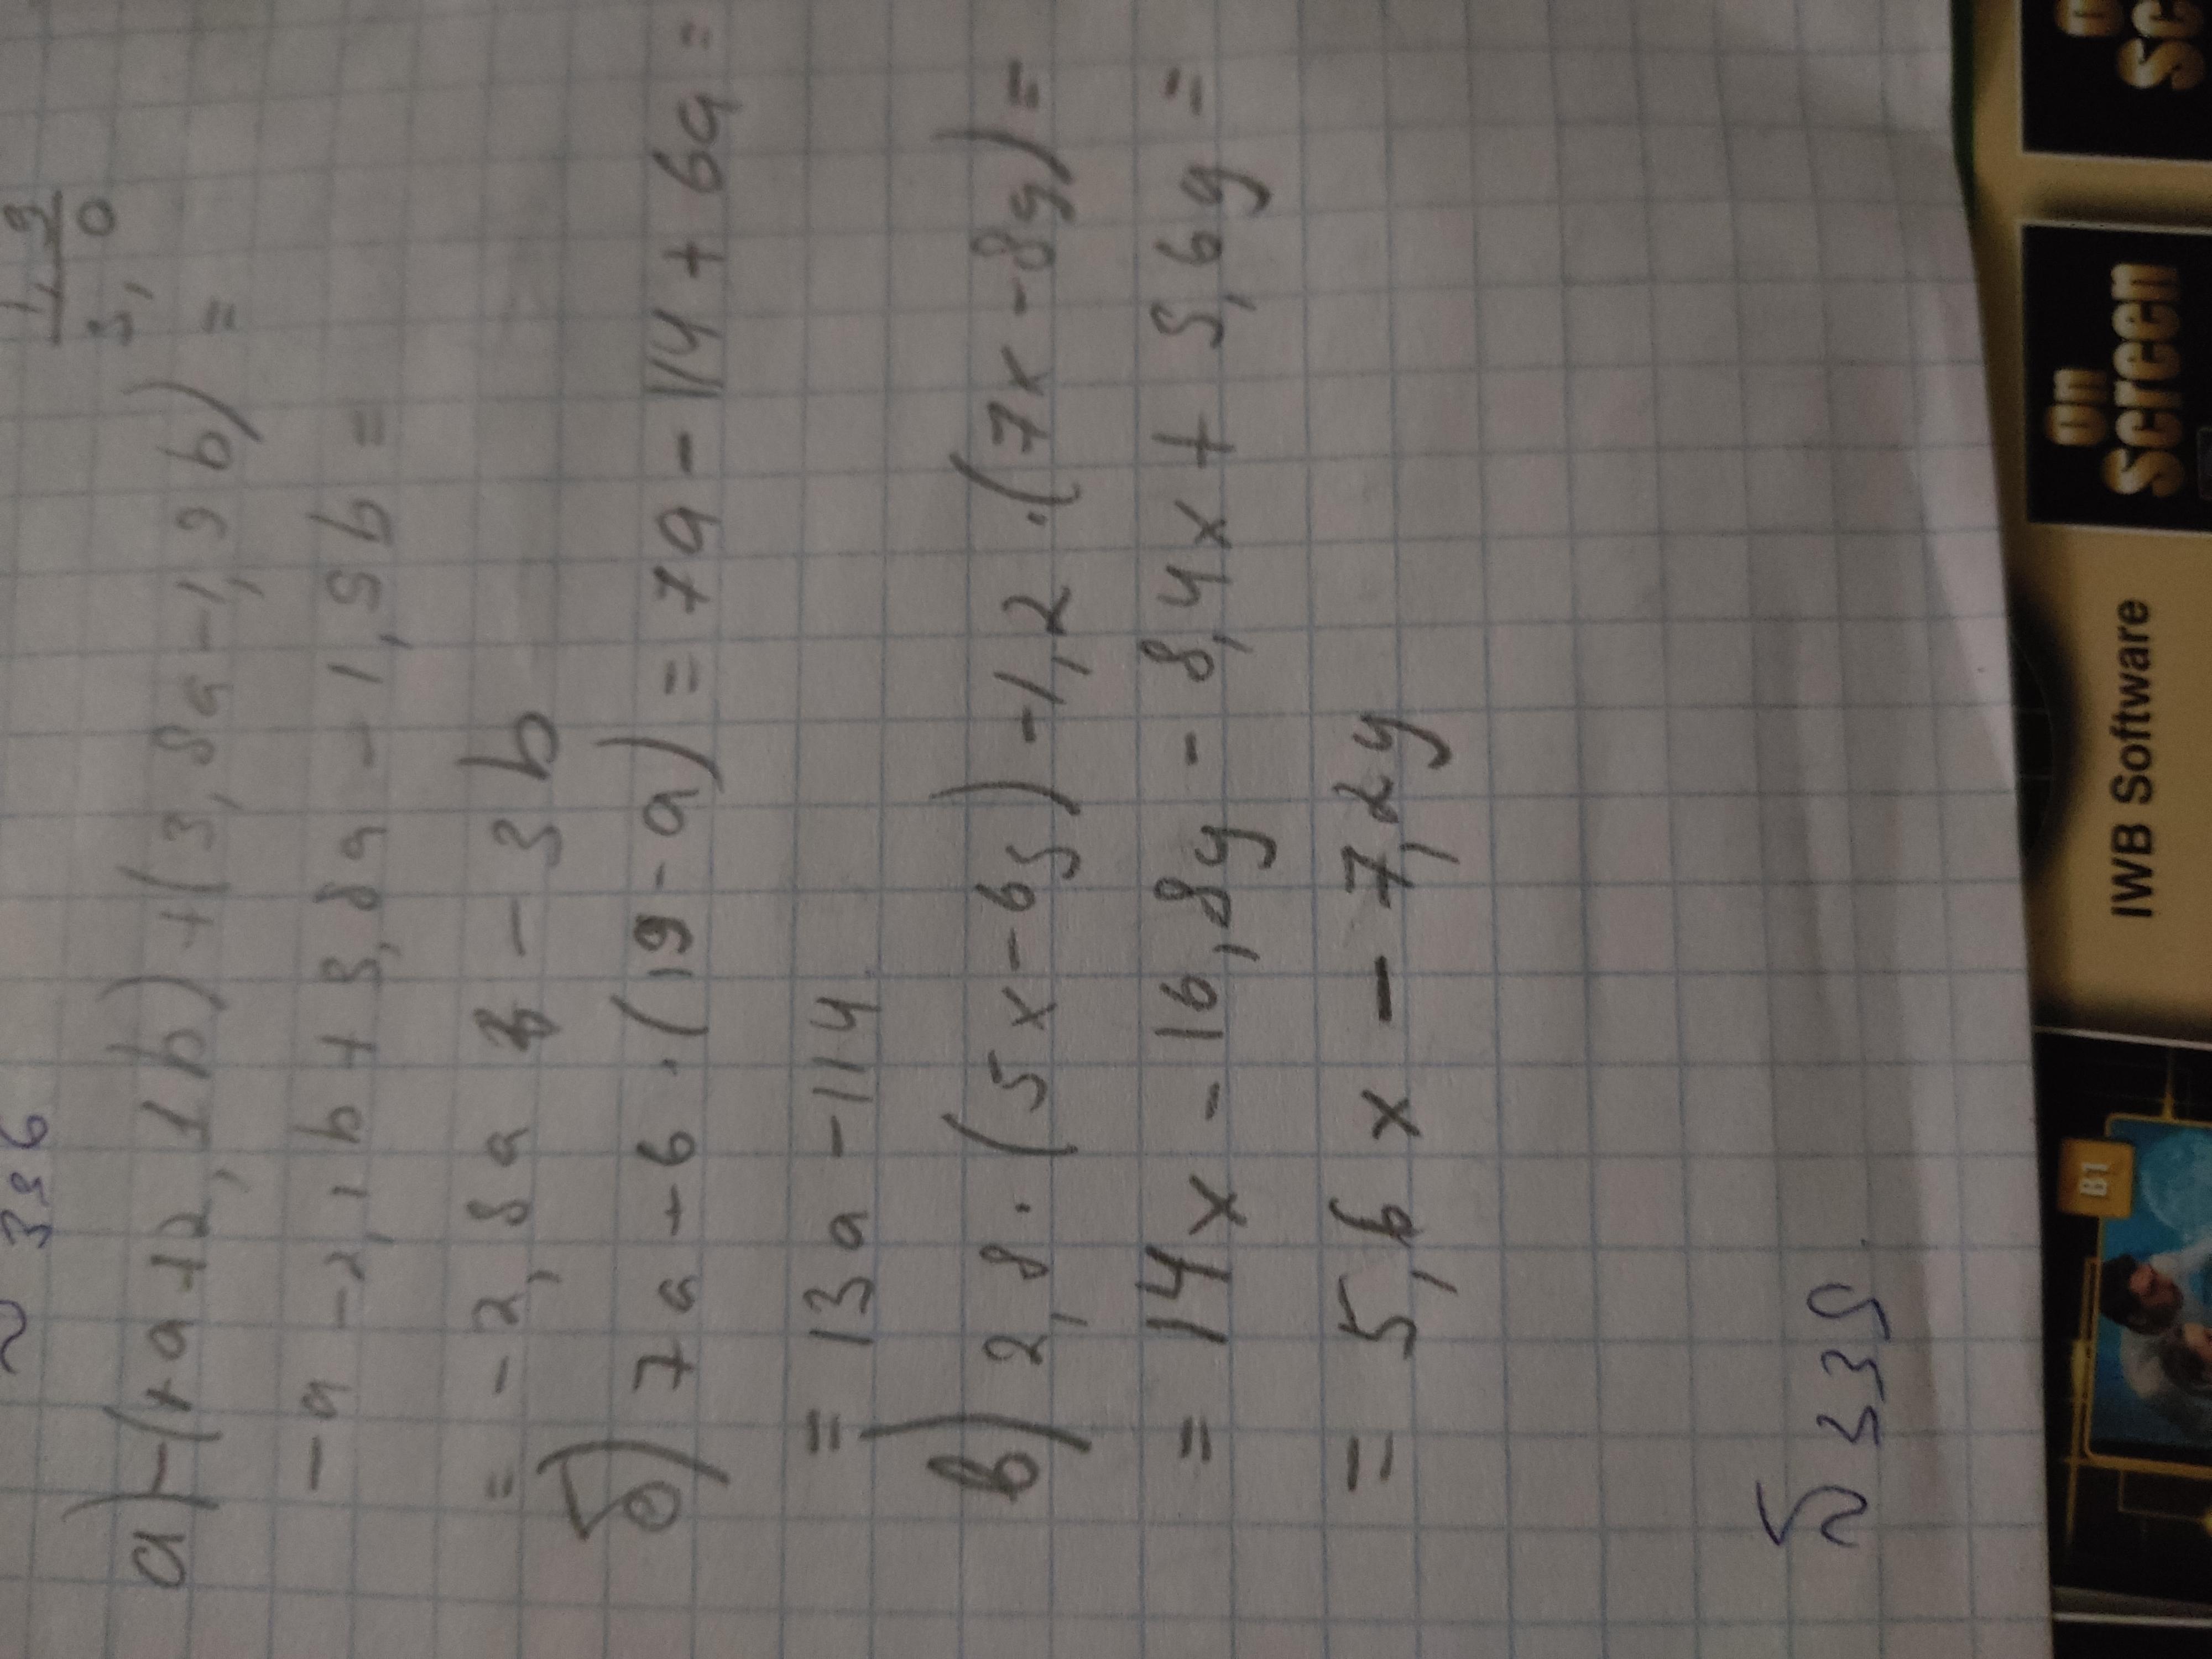 1,9
3,0
~ 336
а) -(+a+2,1b)+(3,8a-1,9b) =
-a -2,1b + 3,8a - 1,9b =
= -2,8a - 3b
б) 7a - 6 · (19 - a) = 7a - 114 + 6a =
= 13a - 114
в) 2,8 · (5x - 6y) - 1,2 · (7x - 8y) =
= 14x - 16,8y - 8,4x + 9,6y =
= 5,6x - 7,2y
339
B1
IWB Software
on
Screen